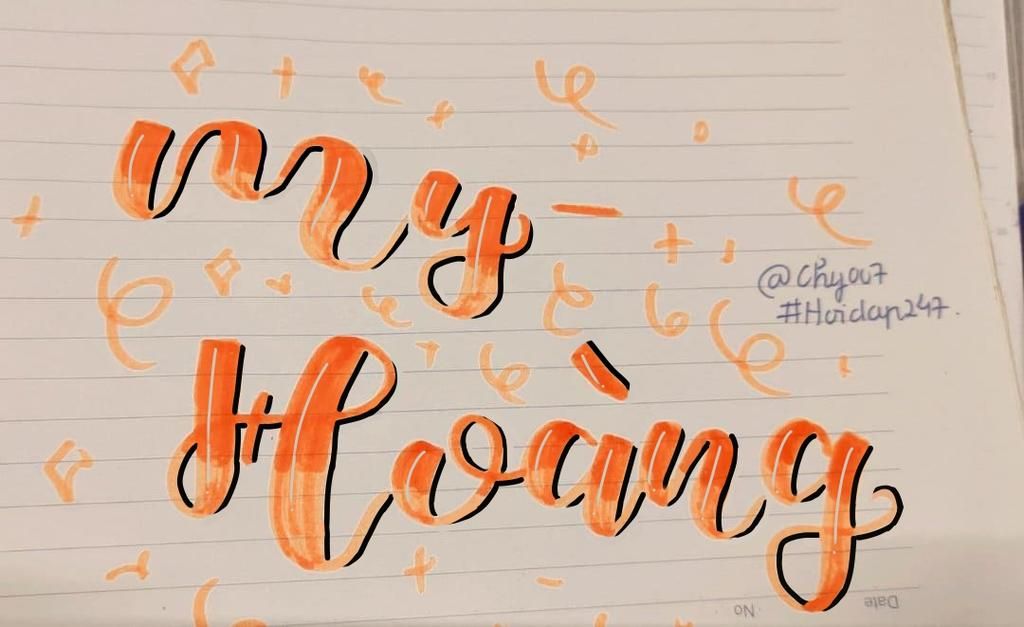 my -
Hoàng
@Chyou7
#Hoidap247.
Date
No